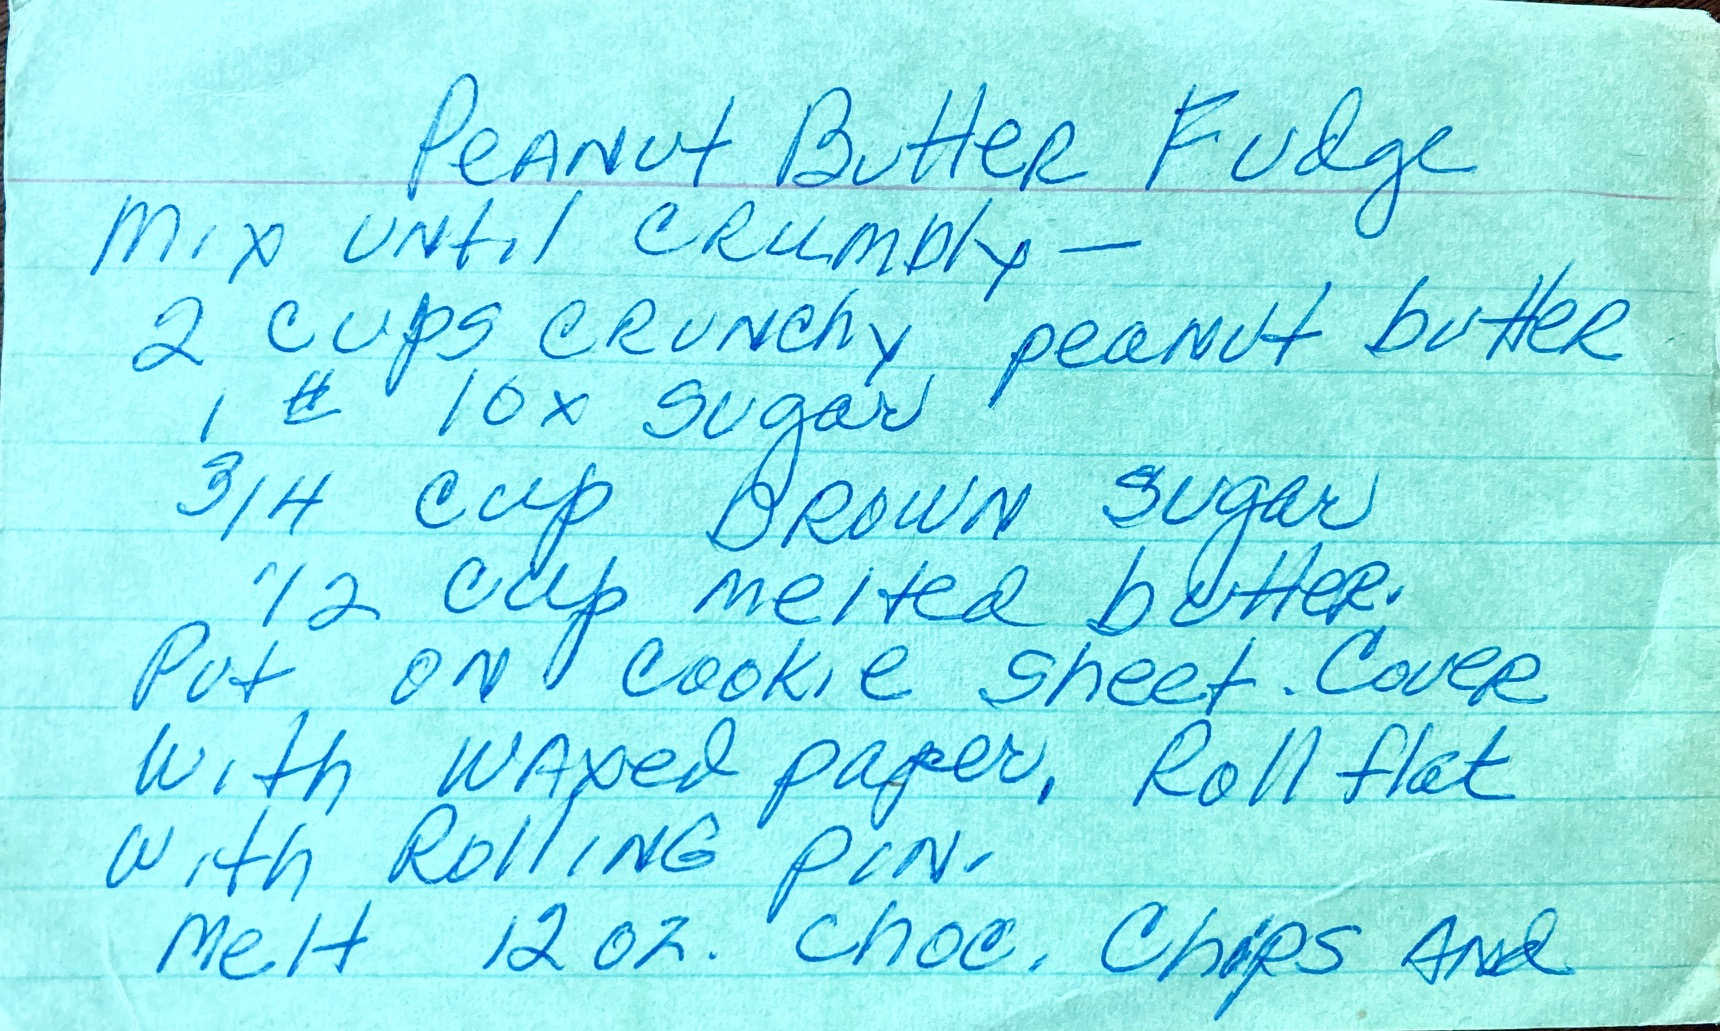 Peanut Butter Fudge
Mix until crumbly –
2 cups crunchy peanut butter
1 # 10x sugar
3/4 cup Brown sugar
1/2 cup melted butter.
Put on cookie sheet. Cover
with waxed paper. Roll flat
with Rolling pin.
Melt 12 oz. choc. Chips And